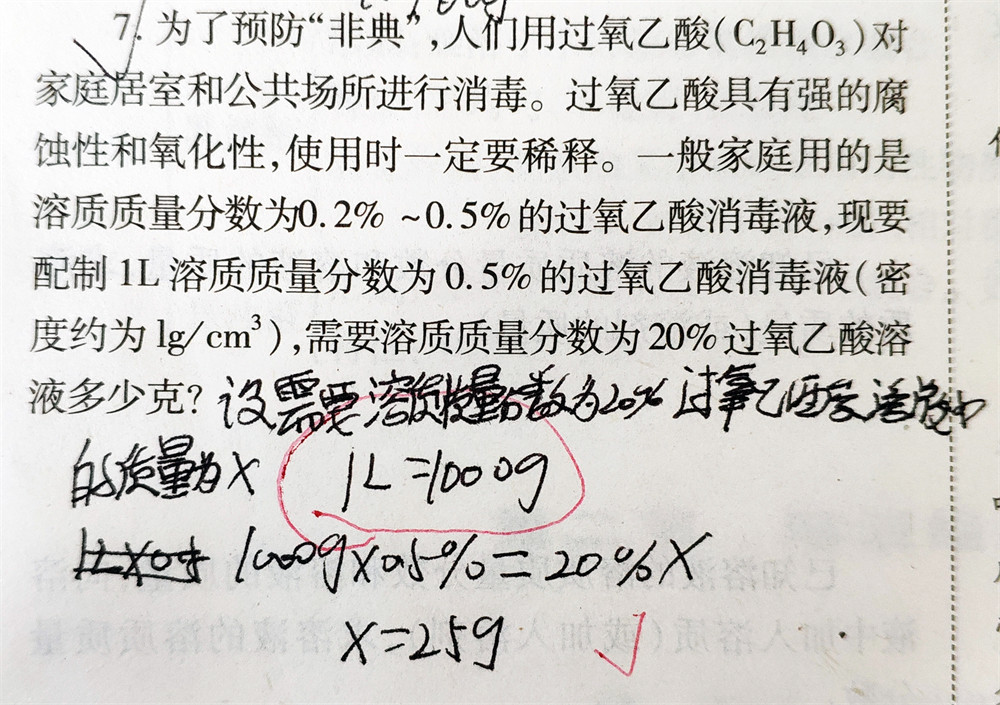 7. 为了预防“非典”,人们用过氧乙酸(C₂H₄O₃)对
家庭居室和公共场所进行消毒。过氧乙酸具有强的腐
蚀性和氧化性,使用时一定要稀释。一般家庭用的是
溶质质量分数为0.2% ~0.5%的过氧乙酸消毒液,现要
配制1L溶质质量分数为0.5%的过氧乙酸消毒液(密
度约为lg/cm³),需要溶质质量分数为20%过氧乙酸溶
液多少克? 设需要溶质质量分数为20%过氧乙酸溶液中
的质量为X 1L=1000g
1000g×0.5%=20%X
X=25g